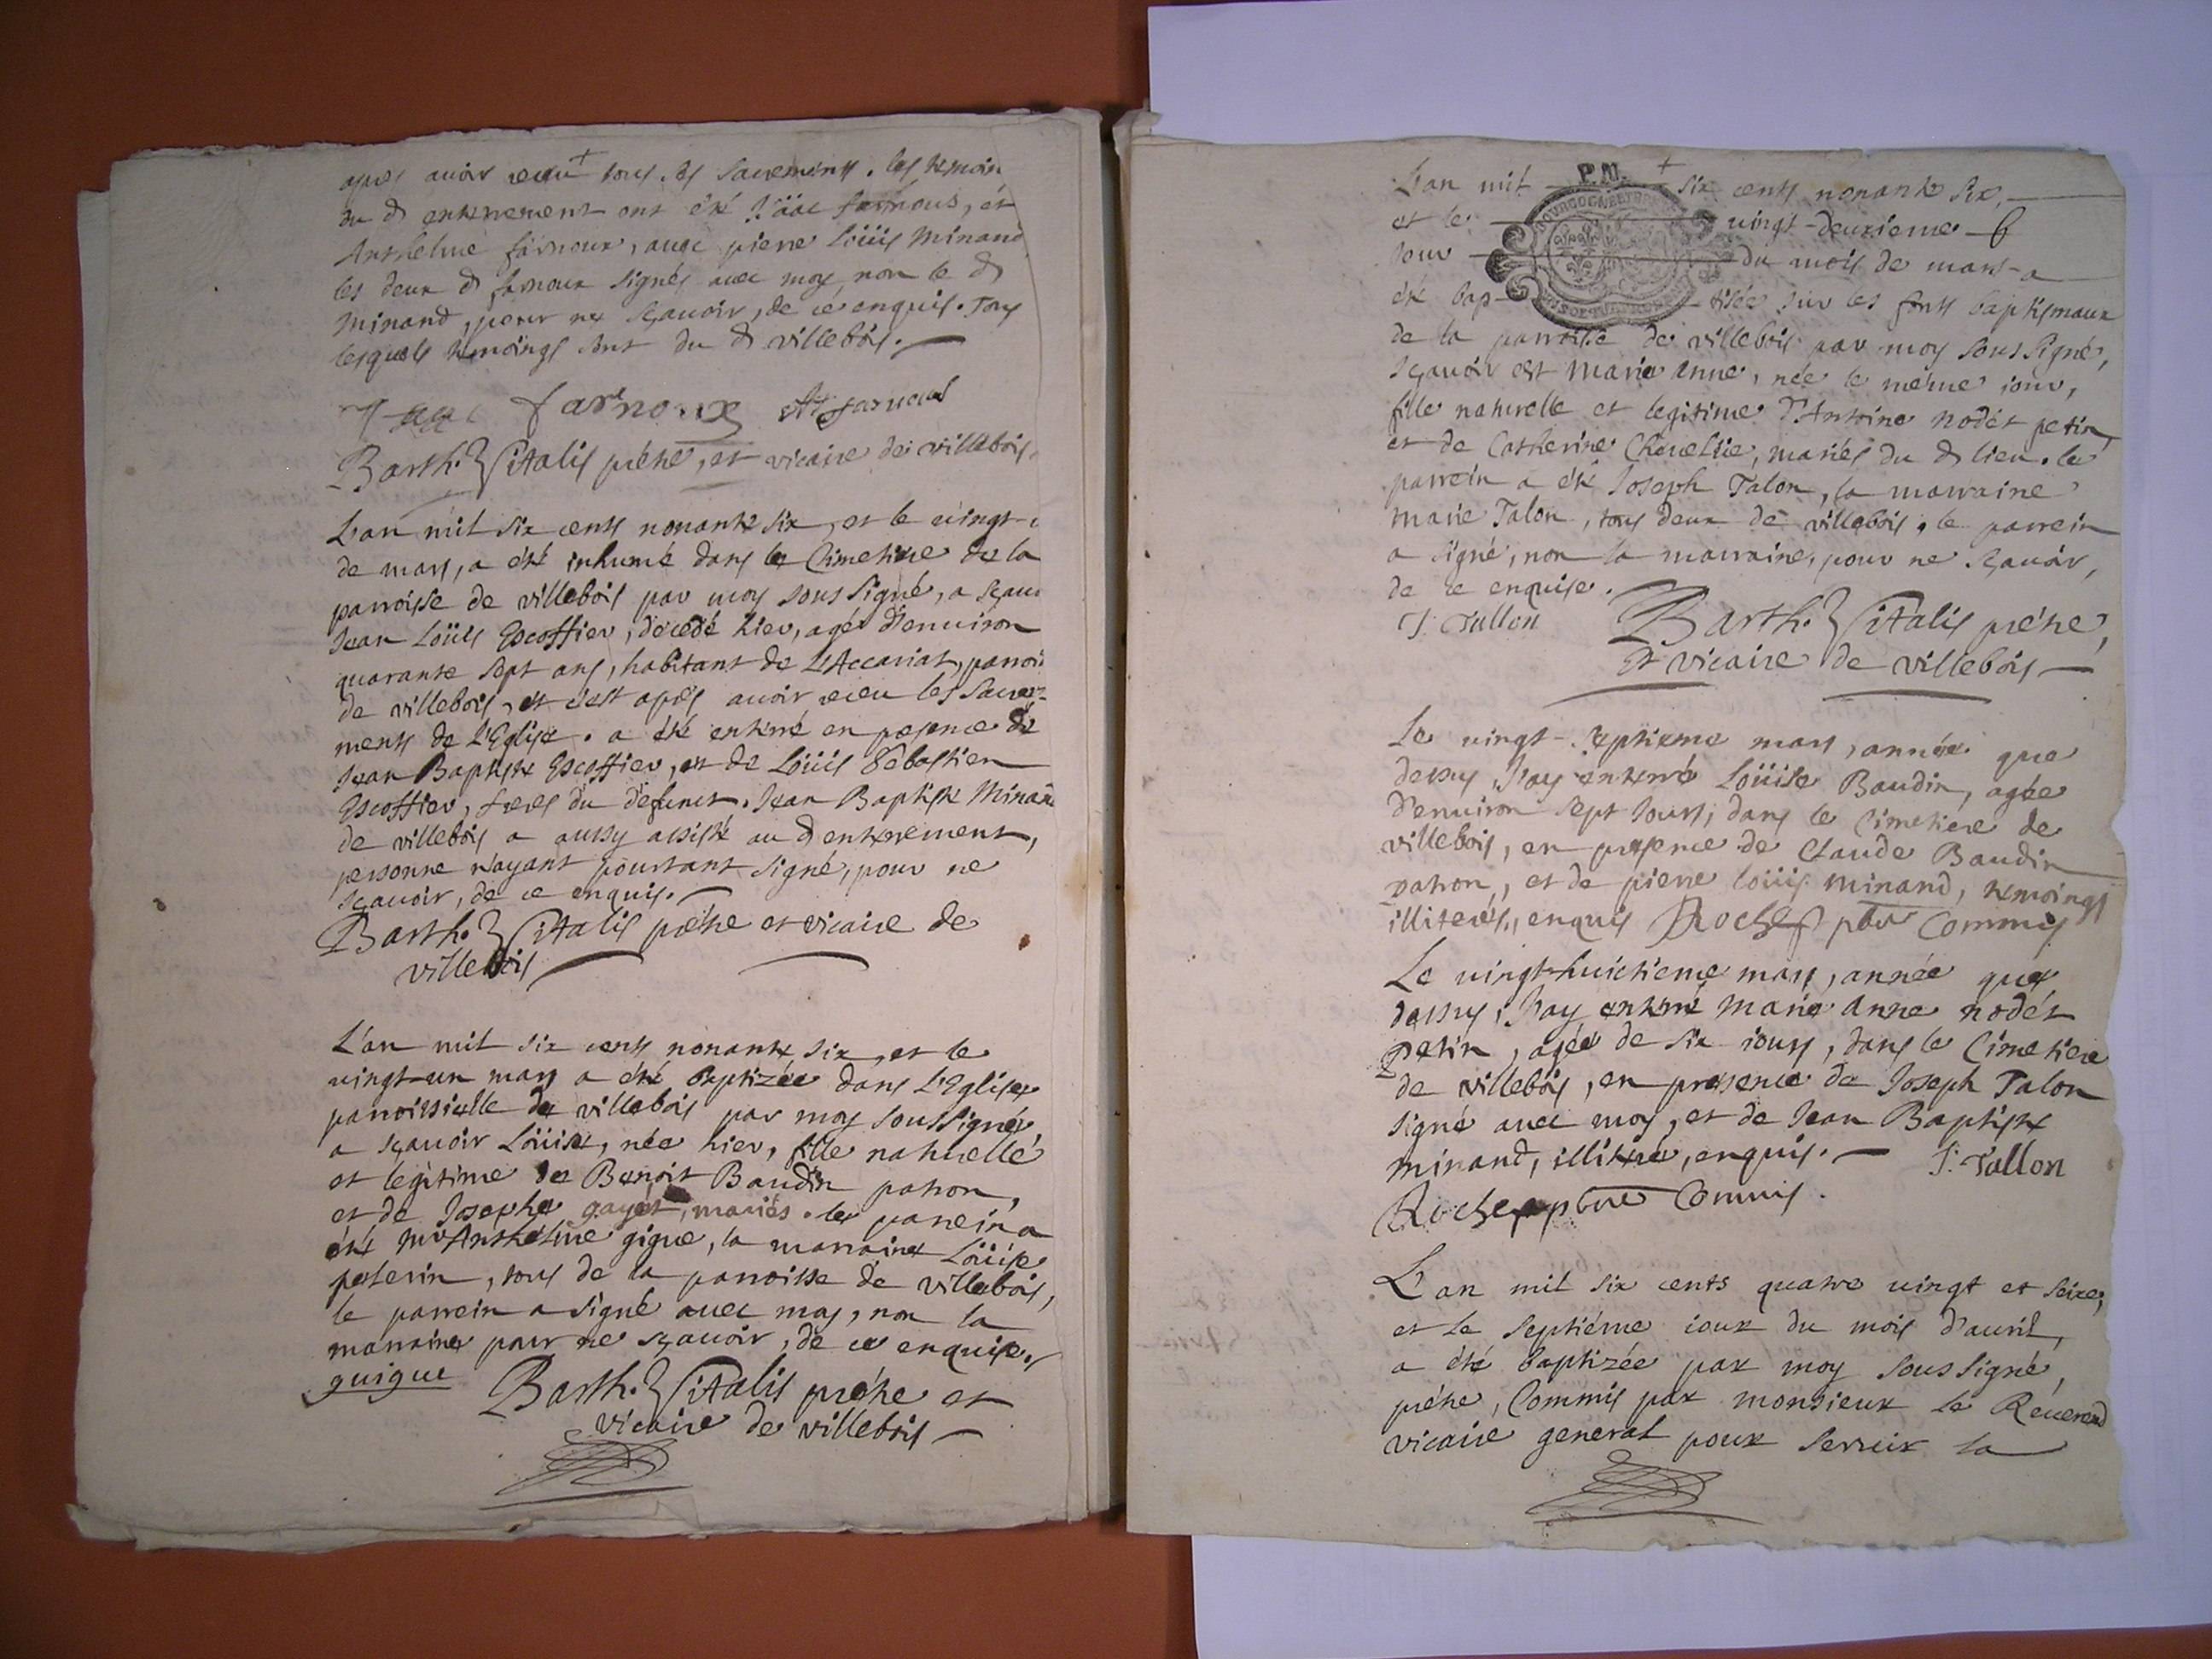 apres auoir receu tous les sacrements. les temoin
du d enterrement ont été Isäac farnous, et
Anthelme farnoux, auec pierre Loüis Minand
les deux d farnoux signés auec moy, non le d
Minand, pour ne sçauoir, de ce enquis. Tous
lesquels temoings sont du d villebois.
Isaac farnoux A farnoud
Barth. Vitalis prétre, et vicaire de villebois.
L'an mil six cents nonante six, et le vingt
de mars, a été inhumé dans le Cimetiere de la
parroisse de villebois par moy sous signé, a sçauo
Jean Loüis Escoffier, décedé hier, agé d'enuiron
quarante sept ans, habitant de L'Accariat, parroi
de villebois, et c'est apres auoir receu les sacre-
ments de L'Eglise. a été enterré en presence de
Jean Baptiste Escoffier, et de Loüis Sebastien
Escoffier, freres du defunct. Jean Baptiste Minand
de villebois a aussy assisté au d enterrement,
personne n'ayant pourtant signé, pour ne
sçauoir, de ce enquis.
Barth. Vitalis prétre et vicaire de
villebois
L'an mil six cents nonante six, et le
vingt-un mars a été baptizée dans L'Eglise
parroissielle de villebois par moy soussigné,
a sçauoir Loüise, née hier, fille naturelle
et legitime de Benoit Baudin patron,
et de Josephe gayet, mariés. le parrein a
été Mr Anthelme gigue, la marraine Loüise
peterin, tous de la parroisse de villebois,
le parrein a signé auec moy, non la
marraine pour ne sçauoir, de ce enquise.
guigue
Barth. Vitalis prétre et
vicaire de villebois
P.M.
L'an mil six cents nonante six,
et le vingt-deuxieme
Jour du mois de mars a
été bap- tisée sur les fonts baptismaux
de la parroisse de villebois par moy sous signé,
sçauoir est Marie Anne, née le méme iour,
fille naturelle et legitime d'Antoine nodét petin,
et de Catherine Cheuelue, mariés du d lieu. le
parrein a été Joseph Talon, la marraine
Marie Talon, tous deux de villebois, le parrein
a signé, non la marraine, pour ne sçauoir,
de ce enquise.
J. Tallon
Barth. Vitalis prétre,
Et vicaire de villebois
Le vingt-septieme mars, année que
dessus, J'ay enterré Loüise Baudin, agée
d'enuiron sept Jours, dans le Cimetiere de
villebois, en presence de Claude Baudin
patron, et de pierre loüis minand, temoings
illiterés, enquis Roche pbre Commis
Le vingt-huictieme mars, année que
dessus, J'ay enterré Marie Anne nodét
Petin, agée de six iours, dans le Cimetiere
de villebois, en presence de Joseph Talon
signé auec moy, et de Jean Baptiste
minand, illiteré, enquis.
J. Tallon
Roche pbre Commis.
L'an mil six cents quatre vingt et seize,
et le septiéme iour du mois d'auril,
a été baptizée par moy soussigné,
prétre, Commis par monsieur le Reuerend
vicaire general pour seruir la